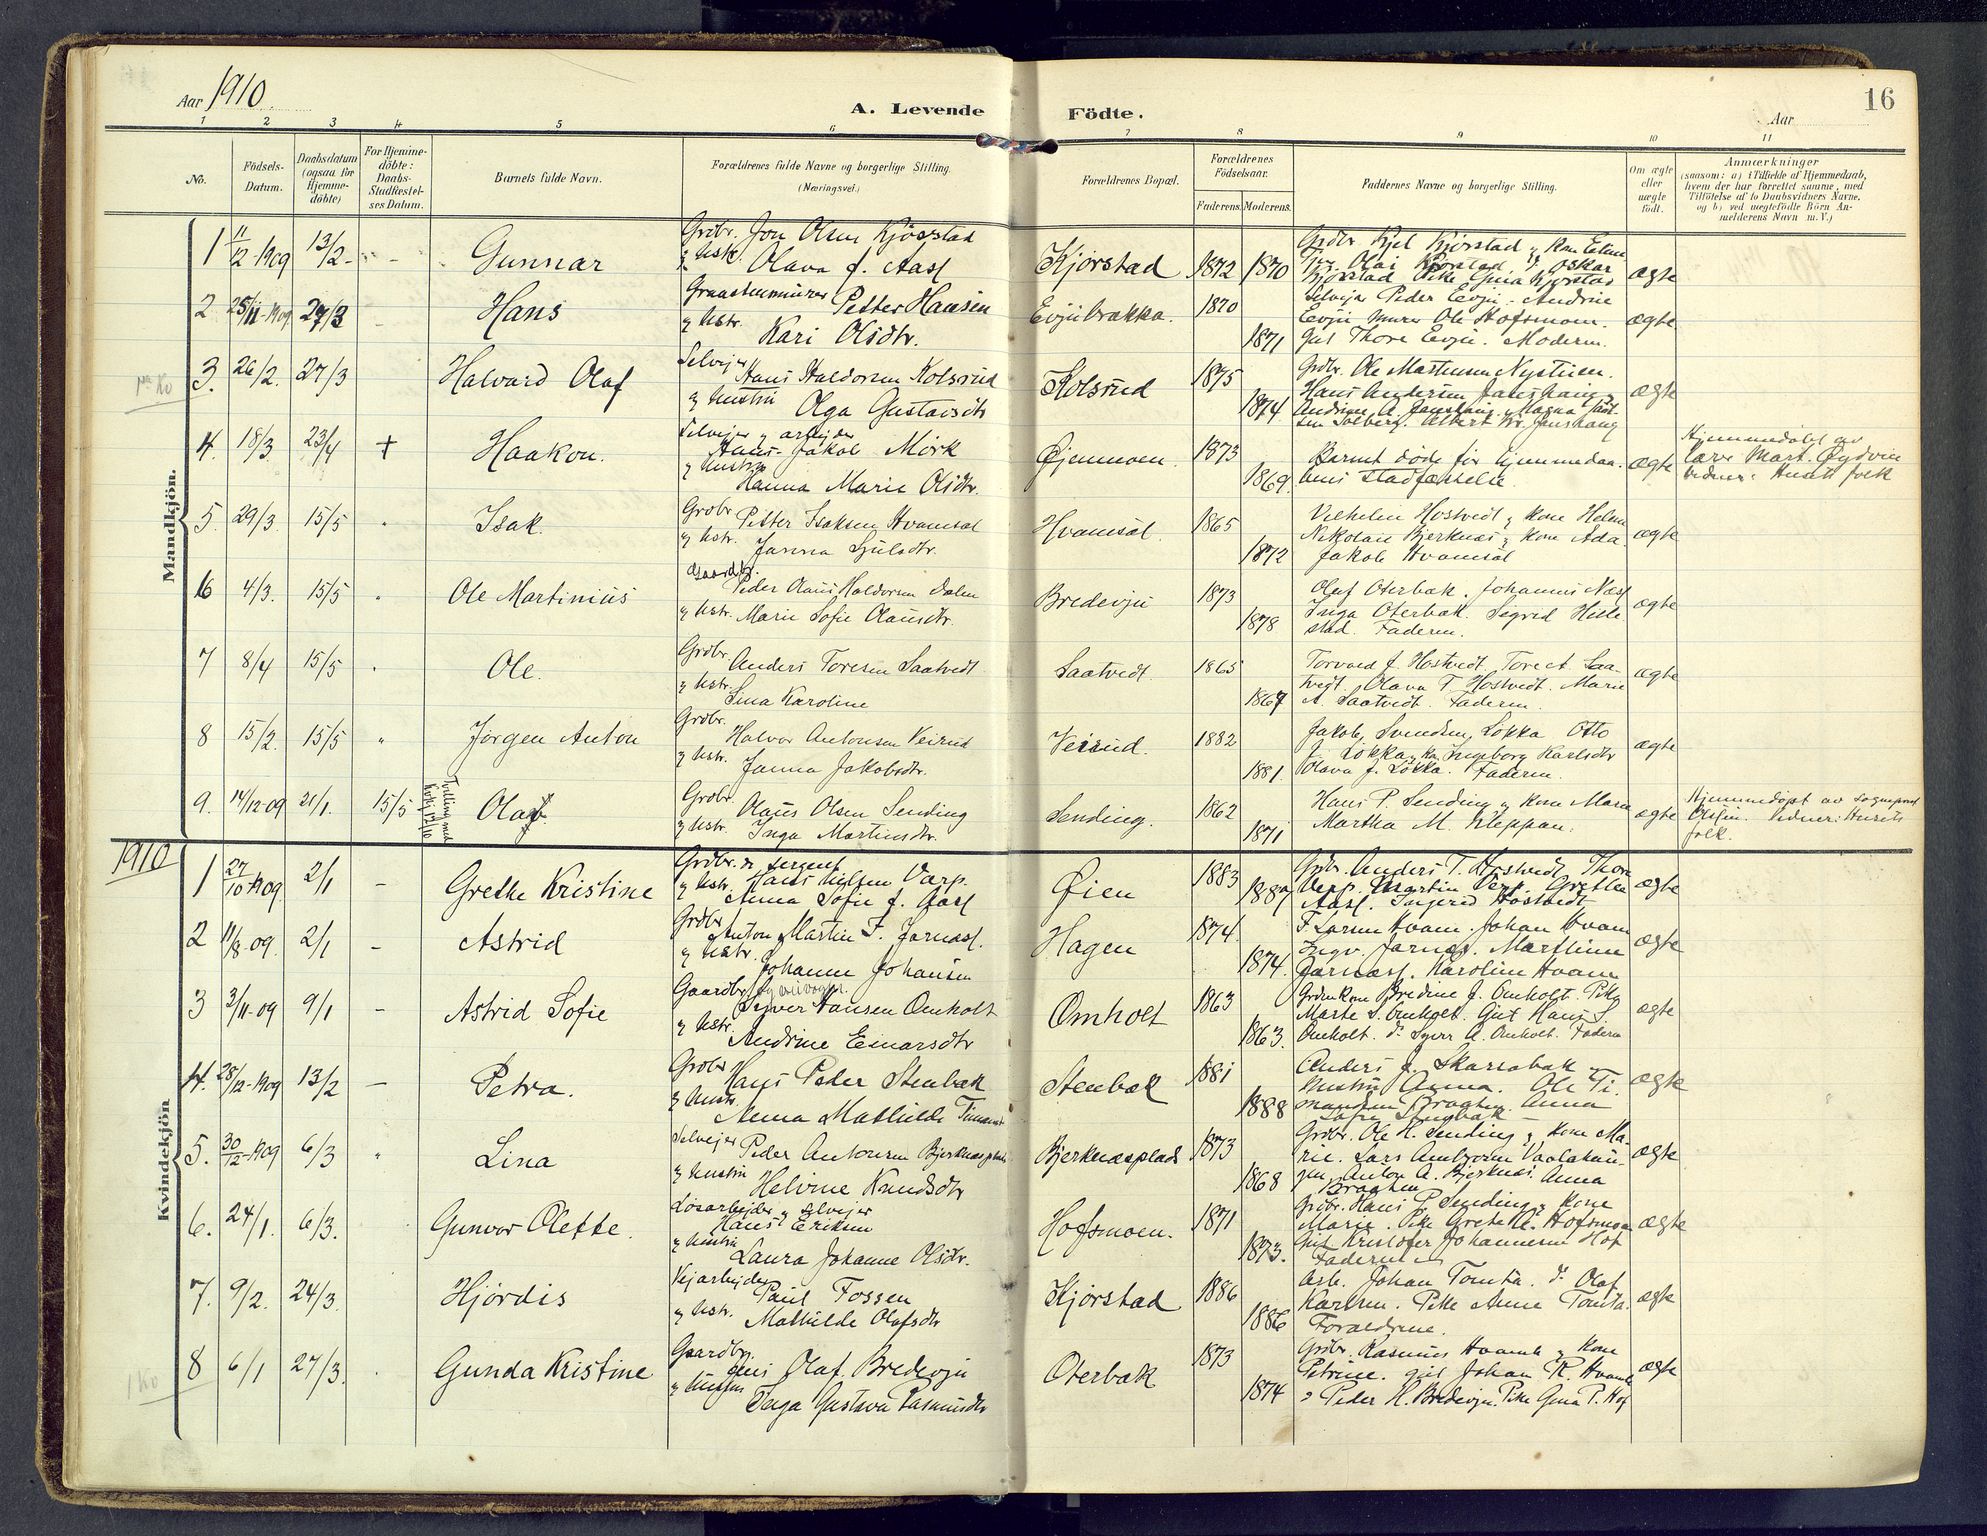 Aar 1910.
A. Levende Födte.
16
Aar
1 2 3 4 5 6 7 8 9 10 11
No.
Födsels-Datum.
Daabsdatum (ogsaa for Hjemme-döbte)
For Hjemme-döbte: Daabs-Stadfæstel-ses Datum.
Barnets fulde Navn.
Forældrenes fulde Navne og borgerlige Stilling.
(Næringsvei.)
Forældrenes Bopæl.
Forældrenes Födselsaar.
Faderens. Moderens.
Faddernes Navne og borgerlige Stilling.
Om ægte eller uægte födt.
Anmærkninger
(saasom: a) i Tilfælde af Hjemmedaab, hvem der har forrettet samme, med Tilföielse af to Daabsvidners Navne, og b) ved uægtefödte Börn An-melderens Navn m. V.)
Mandkjön.
1 11/12-1909 13/2 - - Gunnar
Grdbr. Jon Olsen Kjørstad
& hstr. Olava J. Aasl
Kjørstad 1872 1870
Grdbr Kjel Kjørstad & Kone
Olai Kjørstad, Oskar
Kjørstad Pike Gina Kjørstad
ægte
2 25/11-1909 27/3 - Hans
Graastensmurer Petter Hansen
& hstr. Kari Olsdtr.
Evjubrakka. 1870 1871
Selvejer Peder Evju. Andrine
Evju murer Ole Hofsmoen.
Gut Thore Evju. Moderen.
ægte
3. 26/2. 27/3 Halvard Olaf
Selvejer Hans Haldorsen Kolsrud
& hustru Olga Gustavsdtr
Kolsrud 1875 1874
Grdbr. Ole Martinsen Nystuen.
Hans Andersen Janshaug &
Andrine A. Janshaug. Magna
Solberg. Albert Kr. Janshaug
ægte
4. 18/3 23/4 + Haakon.
Selvejer & arbejder
Hans Jakob Mørk
& hustru Hanna Marie Olsdtr.
Øjenmoen. 1873 1869.
Barnet døde før hjemmedaa-
bens stadfæstelse.
ægte
Hjemmedøbt av
Lars Mart. Øydvin
Vidner: Husets folk
5. 29/3. 15/5 " Isak.
Grdbr. Petter Isaksen Hvamsal
& hstr. Janna Sjulsdtr.
Hvamsal. 1865 1872
Vilhelm Hostvedt & kone Helene
Nikolai Bjerknæs & kone Ada.
Jakob Hvamsal
ægte
6 4/3. 15/5 " Ole Martinius
Gaardbr. Peder Olaus Haldorsen Dalen
& hstr. Marie Sofie Olausdtr.
Bredevju 1873 1878
Oluf Oterbæk. Johannes Næsl
Inga Oterbæk. Sigrid Hille-
stad. Faderen.
ægte
7 8/4 15/5 " Ole.
Grdbr. Anders Toresen Saatvedt
& hstr. Lina Karoline
Saatvedt. 1865 1867
Torvald J. Hostvedt, Tore A. Saa-
tvedt. Olava T. Hostvedt. Marie
A. Saatvedt. Faderen.
ægte
8 15/2. 15/5 " Jørgen Anton
Grdbr. Halvor Antonsen Veirud
& hstr. Janna Jakobsdtr.
Veirud. 1882 1881
Jakob Svendsen Løkka Otto
J. Løkka, Ingeborg Karlsdtr
Olava J. Løkka. Faderen.
ægte
9. 14/12-09 21/1. 15/5 Tvilling med Kvkj 12/10 Olaf
Grdbr. Olaus Olsen Sending
& hstr. Inga Martinsdtr.
Sending. 1862 1871
Hans P. Sending & kone Maren
Martha M. Kleppan.
ægte
Hjemmedøpt av sogneprest
Olsen. Vidner: Husets
folk.
1910
Kvindekjön
1 27/10-1909 2/1 - Grethe Kristine
Grdbr. & sergent
Hans Nilsen Varp.
& hstr. Anna Sofie J. Aasl
Øien 1883 1887
Grdbr. Anders T. Hostvedt, Thora
Verp. Martin Verp. Grethe
Aasl. Ingerid Hostvedt
ægte
2 11/8 09. 2/1 - Astrid
Grdbr. Anton Martin F. Jarnæsl.
& hstr. Johanne Johansen
Hagen 1874. 1874.
F. Larsen Hvam. Johan Hvam
Ingv. Jarnæs. Marthine
Jarnæsl. Karoline Hvam
ægte
3 3/11-09 9/1 - Astrid Sofie
Gaardbr.
Syver Hansen Omholt
& hstr. Andrine Einarsdtr
Omholt 1863 1863.
Grdmkone Bredine J. Omholt. Pike
Marte S. Omholt. Gut Hans S.
Omholt. Do Syver A. Omholt. Faderen
ægte
4. 28/12-1909 13/2 - Petra.
Grdbr Hans Peder Stenbæk
& hustr. Anna Mathilde
Stenbæk 1881 1888
Anders J. Skarrabæk &
hustru Anna. Ole Ti-
mansen Braathen. Anna
Sofie Stenbæk
ægte
5. 30/12-1909 6/3 " Lina
Selvejer Peder Antonsen Bjerknæsplads
& hustru Helvine Knudsdtr
Bjerknæsplads 1873 1868
Grdbr. Ole H. Sending & kone Ma-
rie. Lars Ambjørn Vaalakaa-
Anton A. Bjerknæs. Anna
Braathen
ægte
6. 24/1. 6/3. Gunvor Olette.
Løsarbejder & selvejer
Hans Eriksen
& hustru Laura Johanne Olsdtr.
Hofsmoen. 1871 1873.
Grdbr. Hans P. Sending & kone
Marie. Pike Grete A. Hofsmoen
Gut Kristofer Johannesen Hof
Faderen
ægte
7. 9/2. 24/3. Hjørdis
Vejarbejder
Paul Fossen
& hstr. Mathilde Olafsdtr
Kjørstad 1886 1886
Arb. Johan Tomta. Do Olaf
Karlsen. Pike Anne Tomta.
Forældrene.
ægte
8 6/1 27/3. Gunda Kristine
Gaardbr. Olaf Bredevju
& hustru Inga Gustava Rasmusdtr
Oterbæk 1873 1874
Grdbr. Rasmus Hvamb & kone
Petrine. gut Johan R. Hvamb
& Peder H. Bredevju. Pike Gina P. Hof
ægte
1 Ko